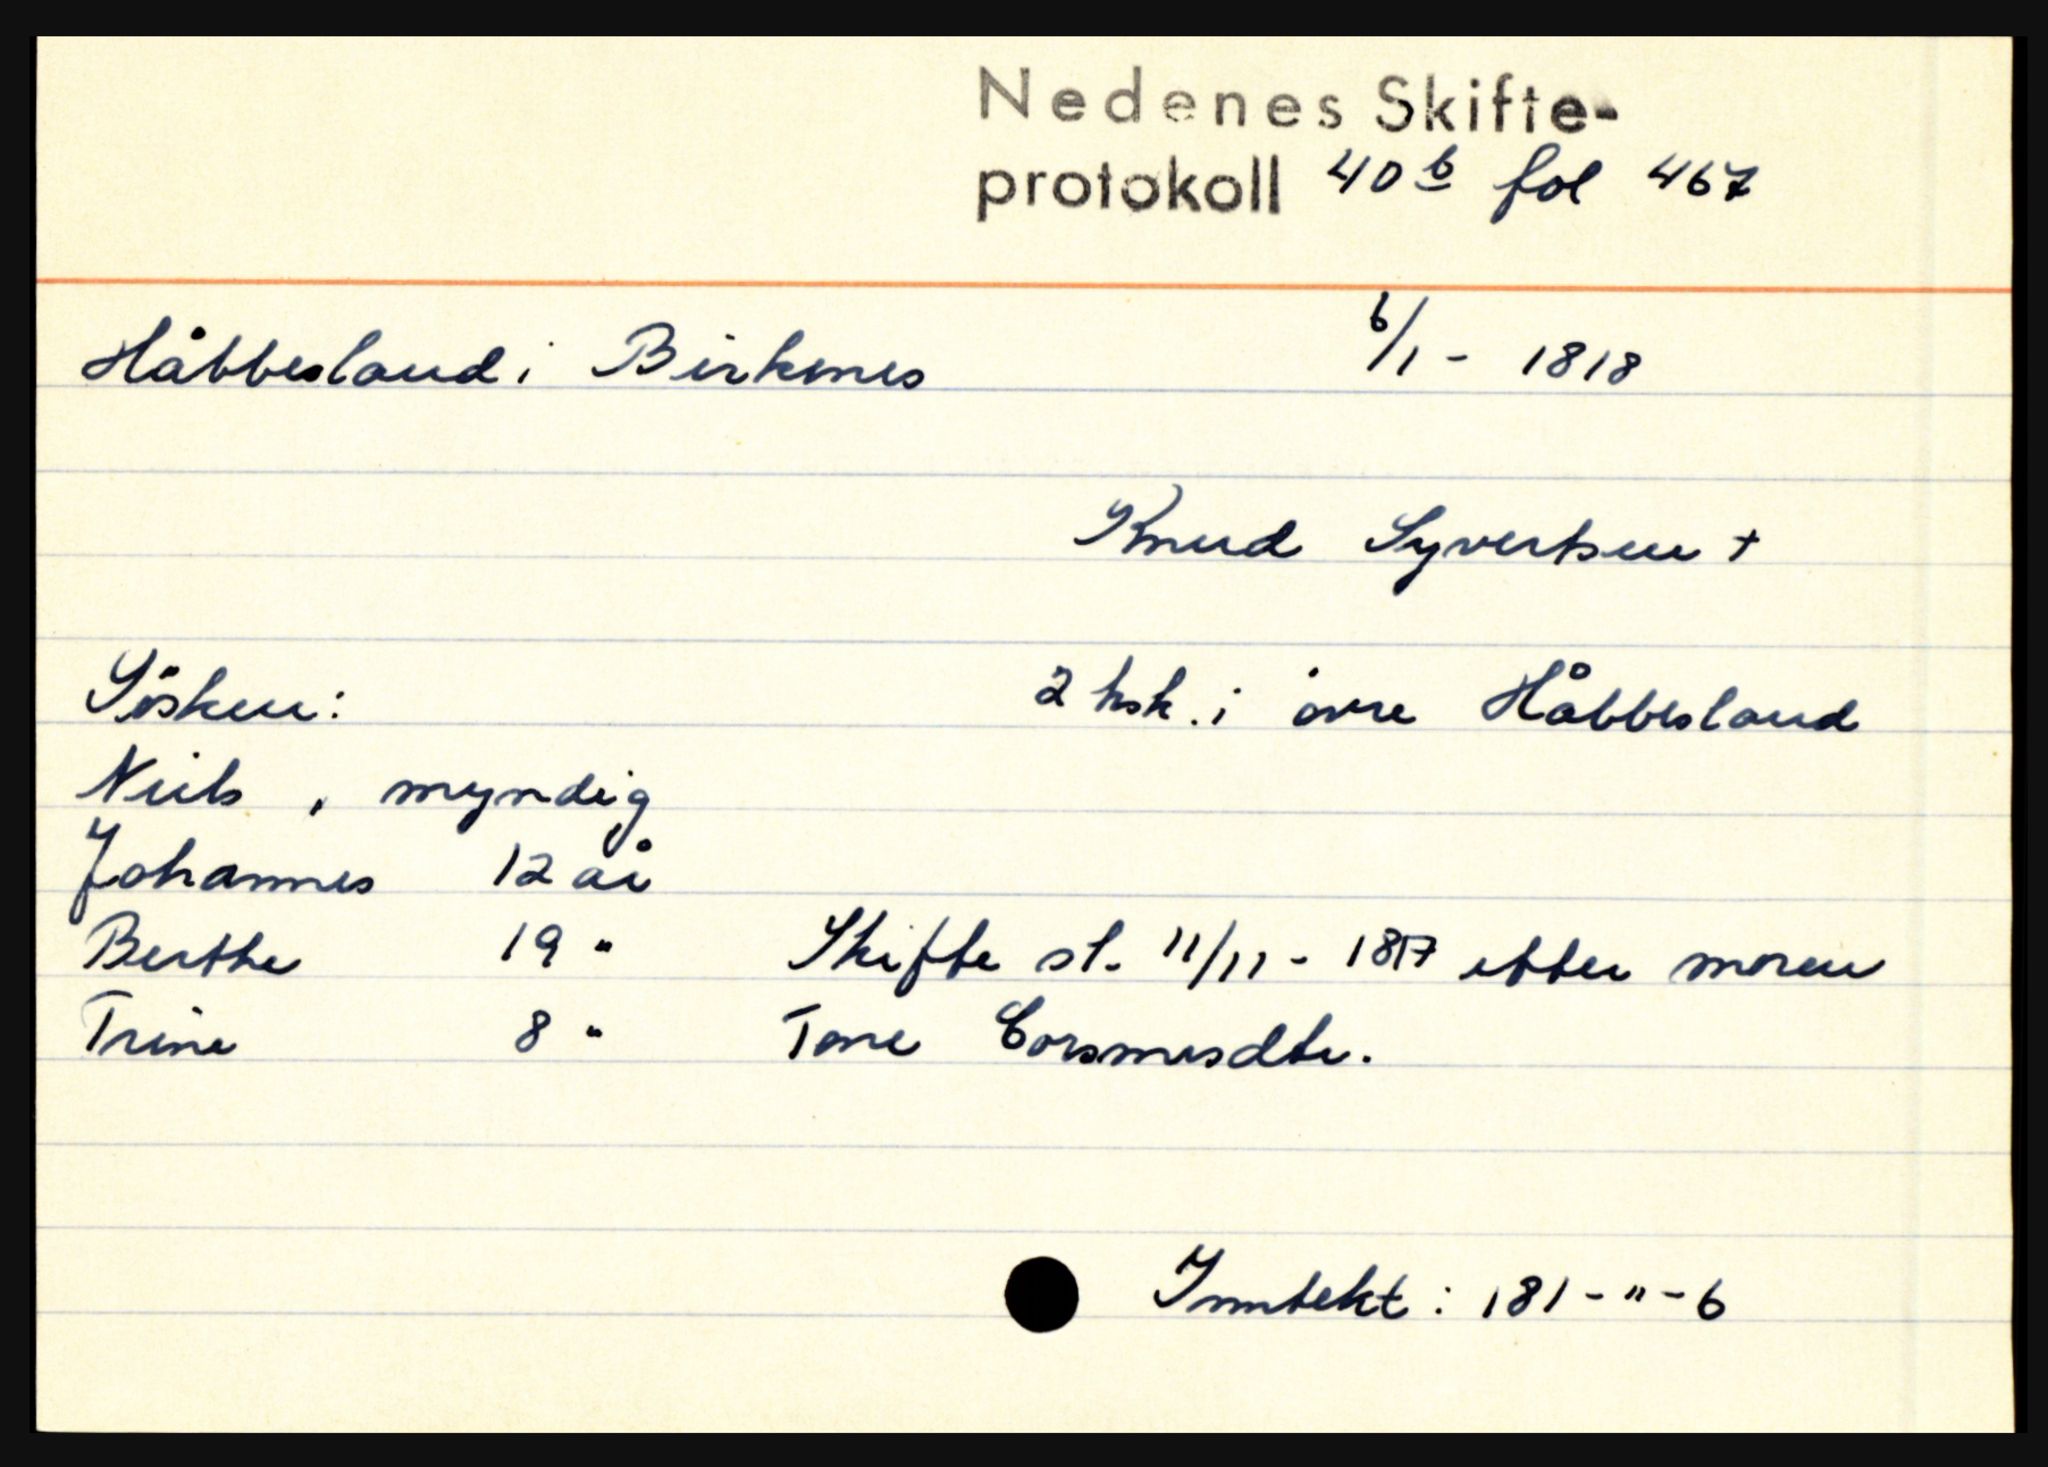 Nedenes Skifte-
protokoll 40 b fol 467
Håbbesland i Birkenes 6/1 - 1818
Knud Syvertsen +
Søsken: 2 hsk. i øvre Håbbesland
Niels, myndig
Johannes 12 år
Berthe 19 " Skifte sl. 11/11 - 1817 etter moren
Trine 8 " Tone Gorsmesdtr.
Inntekt: 181 - " - 6